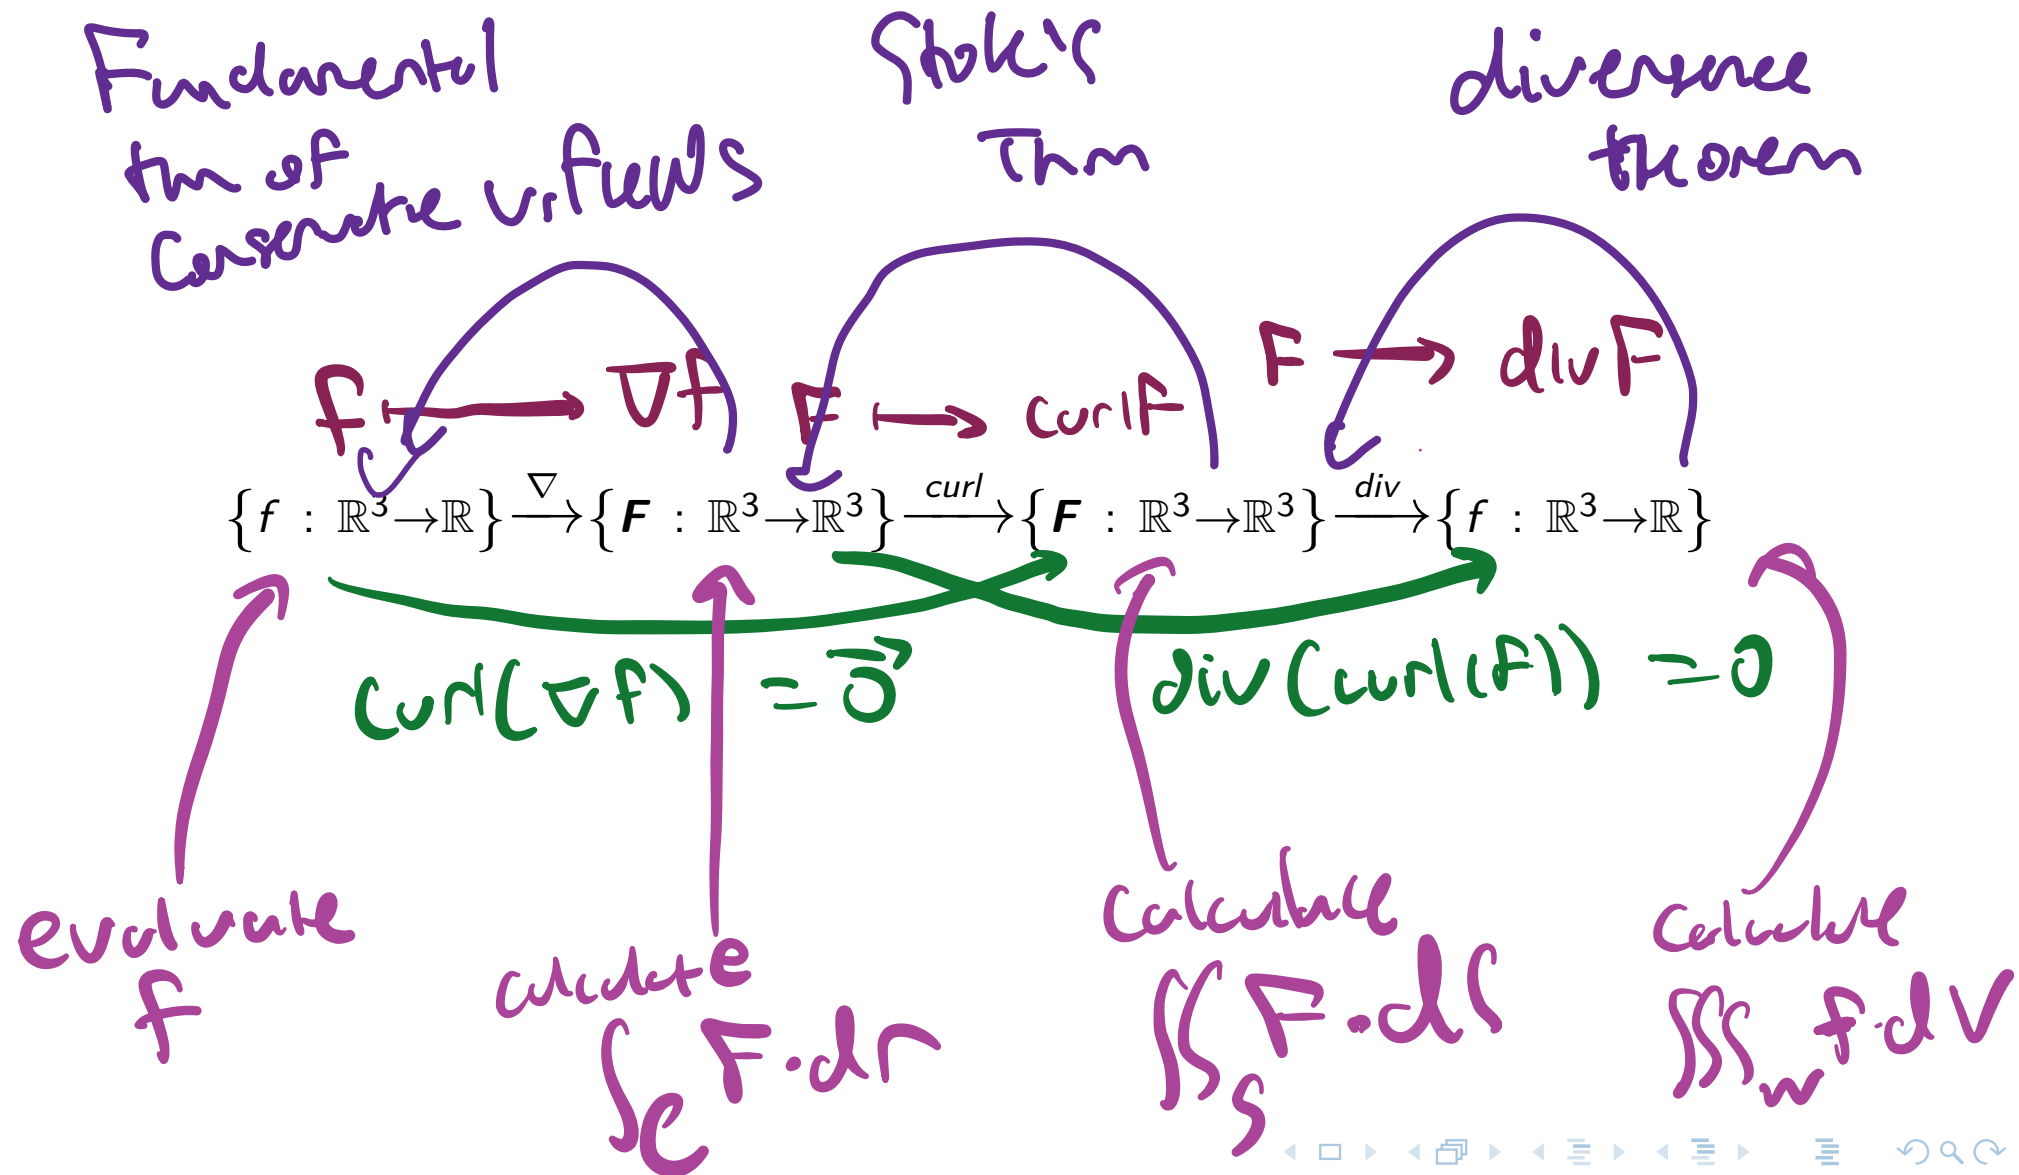 Fundamental
thm of
Conservative v.fields
Stoke's
Thm
divergence
theorem
f ↦ ∇f
F ↦ curl F
F → div F
{f : ℝ³→ℝ} —∇→ {F : ℝ³→ℝ³} —curl→ {F : ℝ³→ℝ³} —div→ {f : ℝ³→ℝ}
curl(∇f) = 0⃗
div(curl(F)) = 0
evaluate
f
calculate
∫_C F·dr
Calculate
∬_S F·dS
Calculate
∭_W f·dV